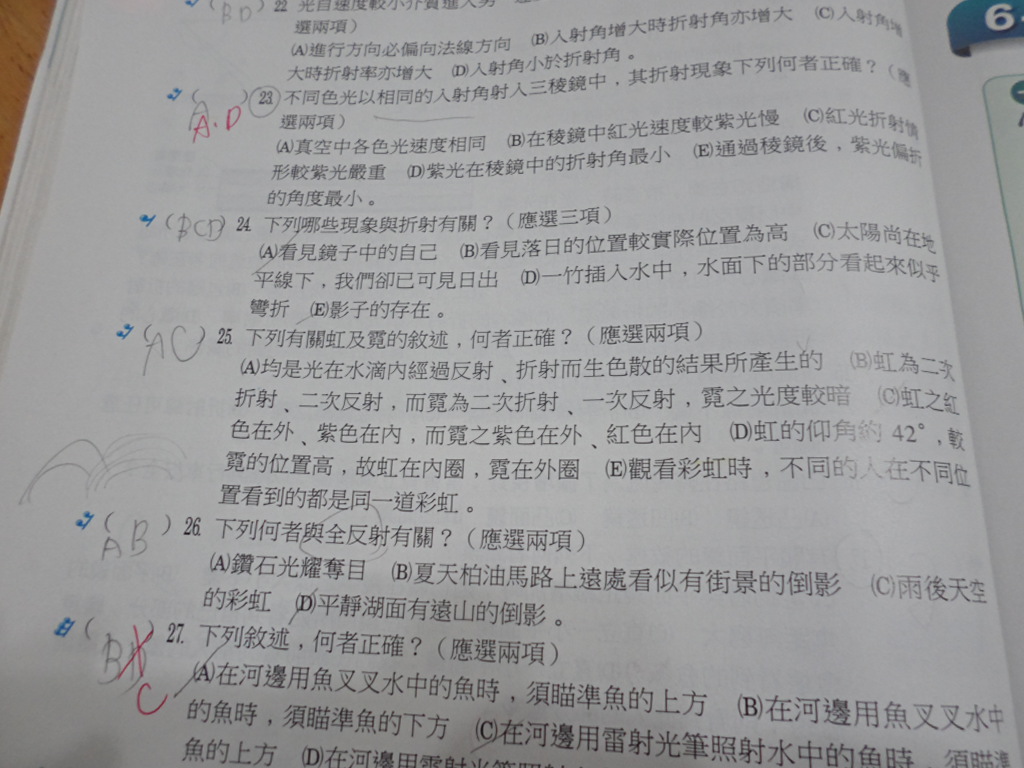 (BD) 22 光自速度較小介質進入另
選兩項)
(A)進行方向必偏向法線方向 (B)入射角增大時折射角亦增大 (C)入射角增
大時折射率亦增大 (D)入射角小於折射角。
A.D 23 不同色光以相同的入射角射入三稜鏡中，其折射現象下列何者正確？(應
選兩項)
(A)真空中各色光速度相同 (B)在稜鏡中紅光速度較紫光慢 (C)紅光折射情
形較紫光嚴重 (D)紫光在稜鏡中的折射角最小 (E)通過稜鏡後，紫光偏折
的角度最小。
(BCD) 24. 下列哪些現象與折射有關？(應選三項)
(A)看見鏡子中的自己 (B)看見落日的位置較實際位置為高 (C)太陽尚在地
平線下，我們卻已可見日出 (D)一竹插入水中，水面下的部分看起來似乎
彎折 (E)影子的存在。
(AC) 25. 下列有關虹及霓的敘述，何者正確？(應選兩項)
(A)均是光在水滴內經過反射、折射而生色散的結果所產生的 (B)虹為二次
折射、二次反射，而霓為二次折射、一次反射，霓之光度較暗 (C)虹之紅
色在外、紫色在內，而霓之紫色在外、紅色在內 (D)虹的仰角約 42°，較
霓的位置高，故虹在內圈，霓在外圈 (E)觀看彩虹時，不同的人在不同位
置看到的都是同一道彩虹。
(AB) 26. 下列何者與全反射有關？(應選兩項)
(A)鑽石光耀奪目 (B)夏天柏油馬路上遠處看似有街景的倒影 (C)雨後天空
的彩虹 (D)平靜湖面有遠山的倒影。
(B C) 27. 下列敘述，何者正確？(應選兩項)
(A)在河邊用魚叉叉水中的魚時，須瞄準魚的上方 (B)在河邊用魚叉叉水中
的魚時，須瞄準魚的下方 (C)在河邊用雷射光筆照射水中的魚時，須瞄準
魚的上方 (D)在河邊用雷射光筆照射
6